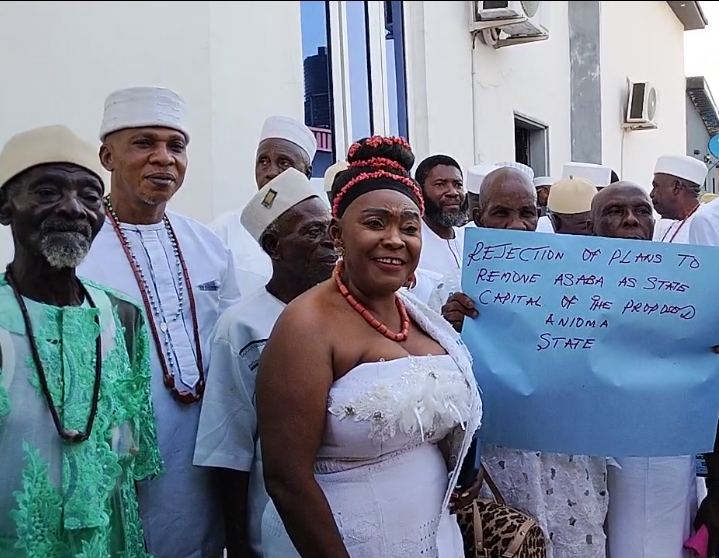 REJECTION OF PLANS TO
REMONE ASABA AS STATE
CAPITAL OF THE PROPOSED
ANIOMA
STATE